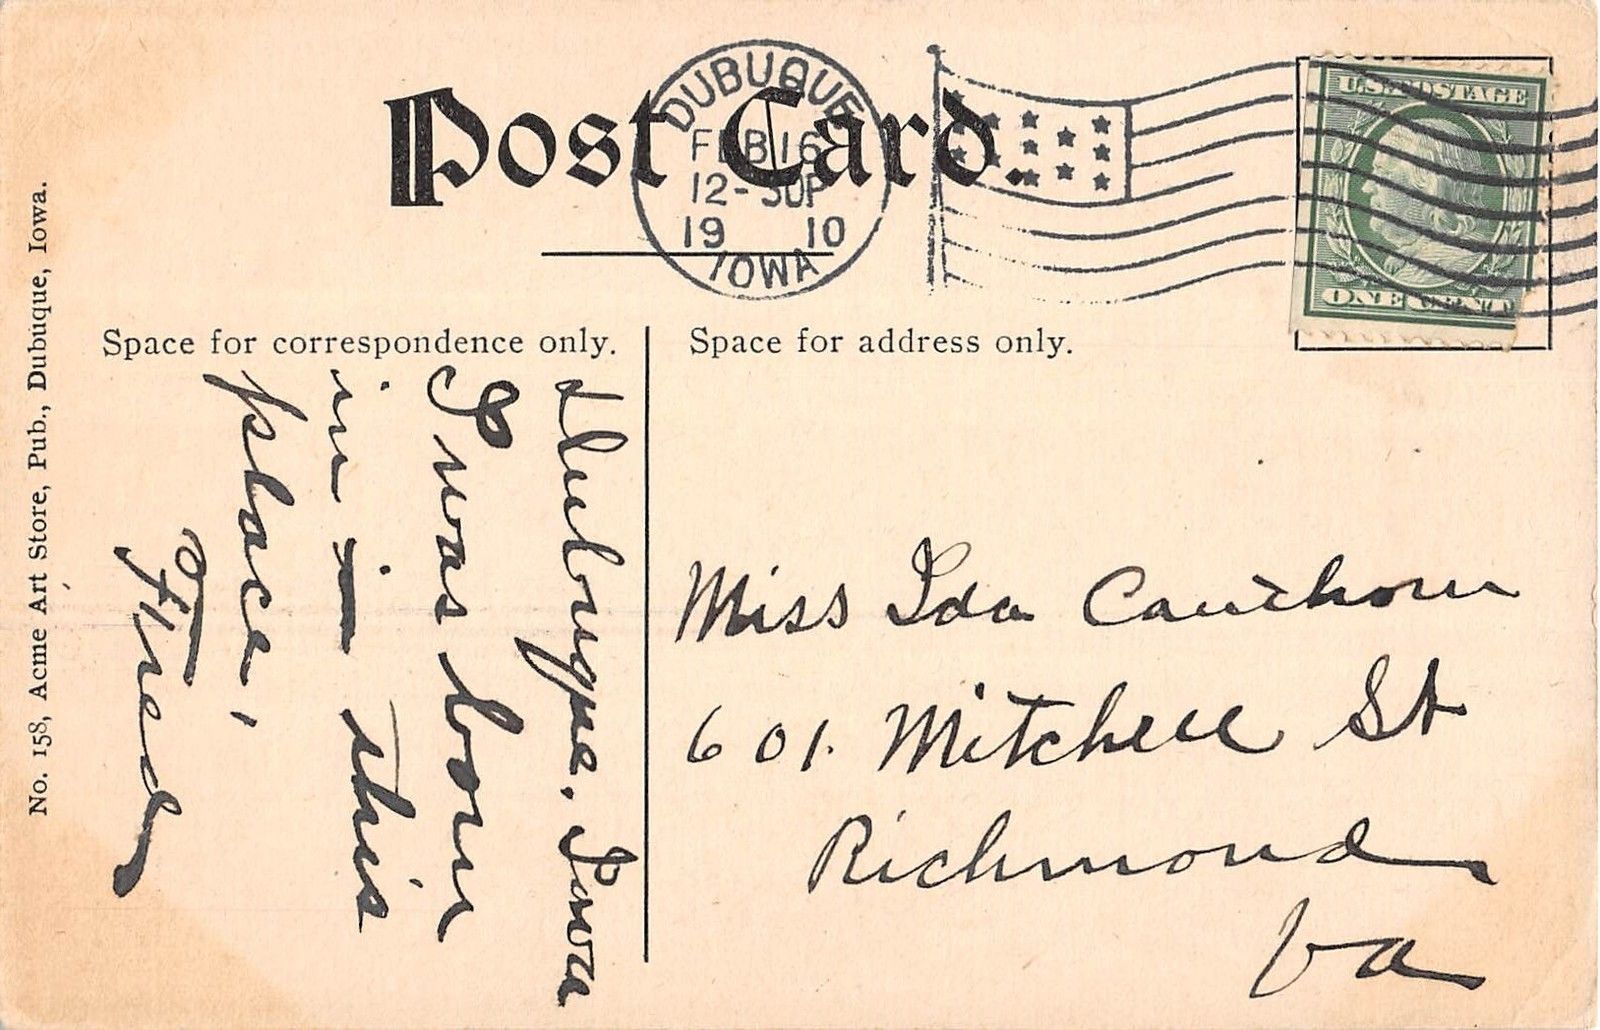 Post Card.
DUBUQUE
FEB 16
12-30P
19 10
IOWA
U.S. POSTAGE
ONE CENT
Space for correspondence only.
Space for address only.
No. 158, Acme Art Store, Pub., Dubuque, Iowa.
Dubuque. Iowa
I was born
in - this
place,
Fred
Miss Ida Cauthorn
601. Mitchell St
Richmond
Va